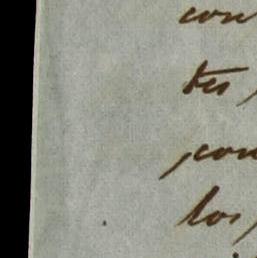 con
tes,
con
los,